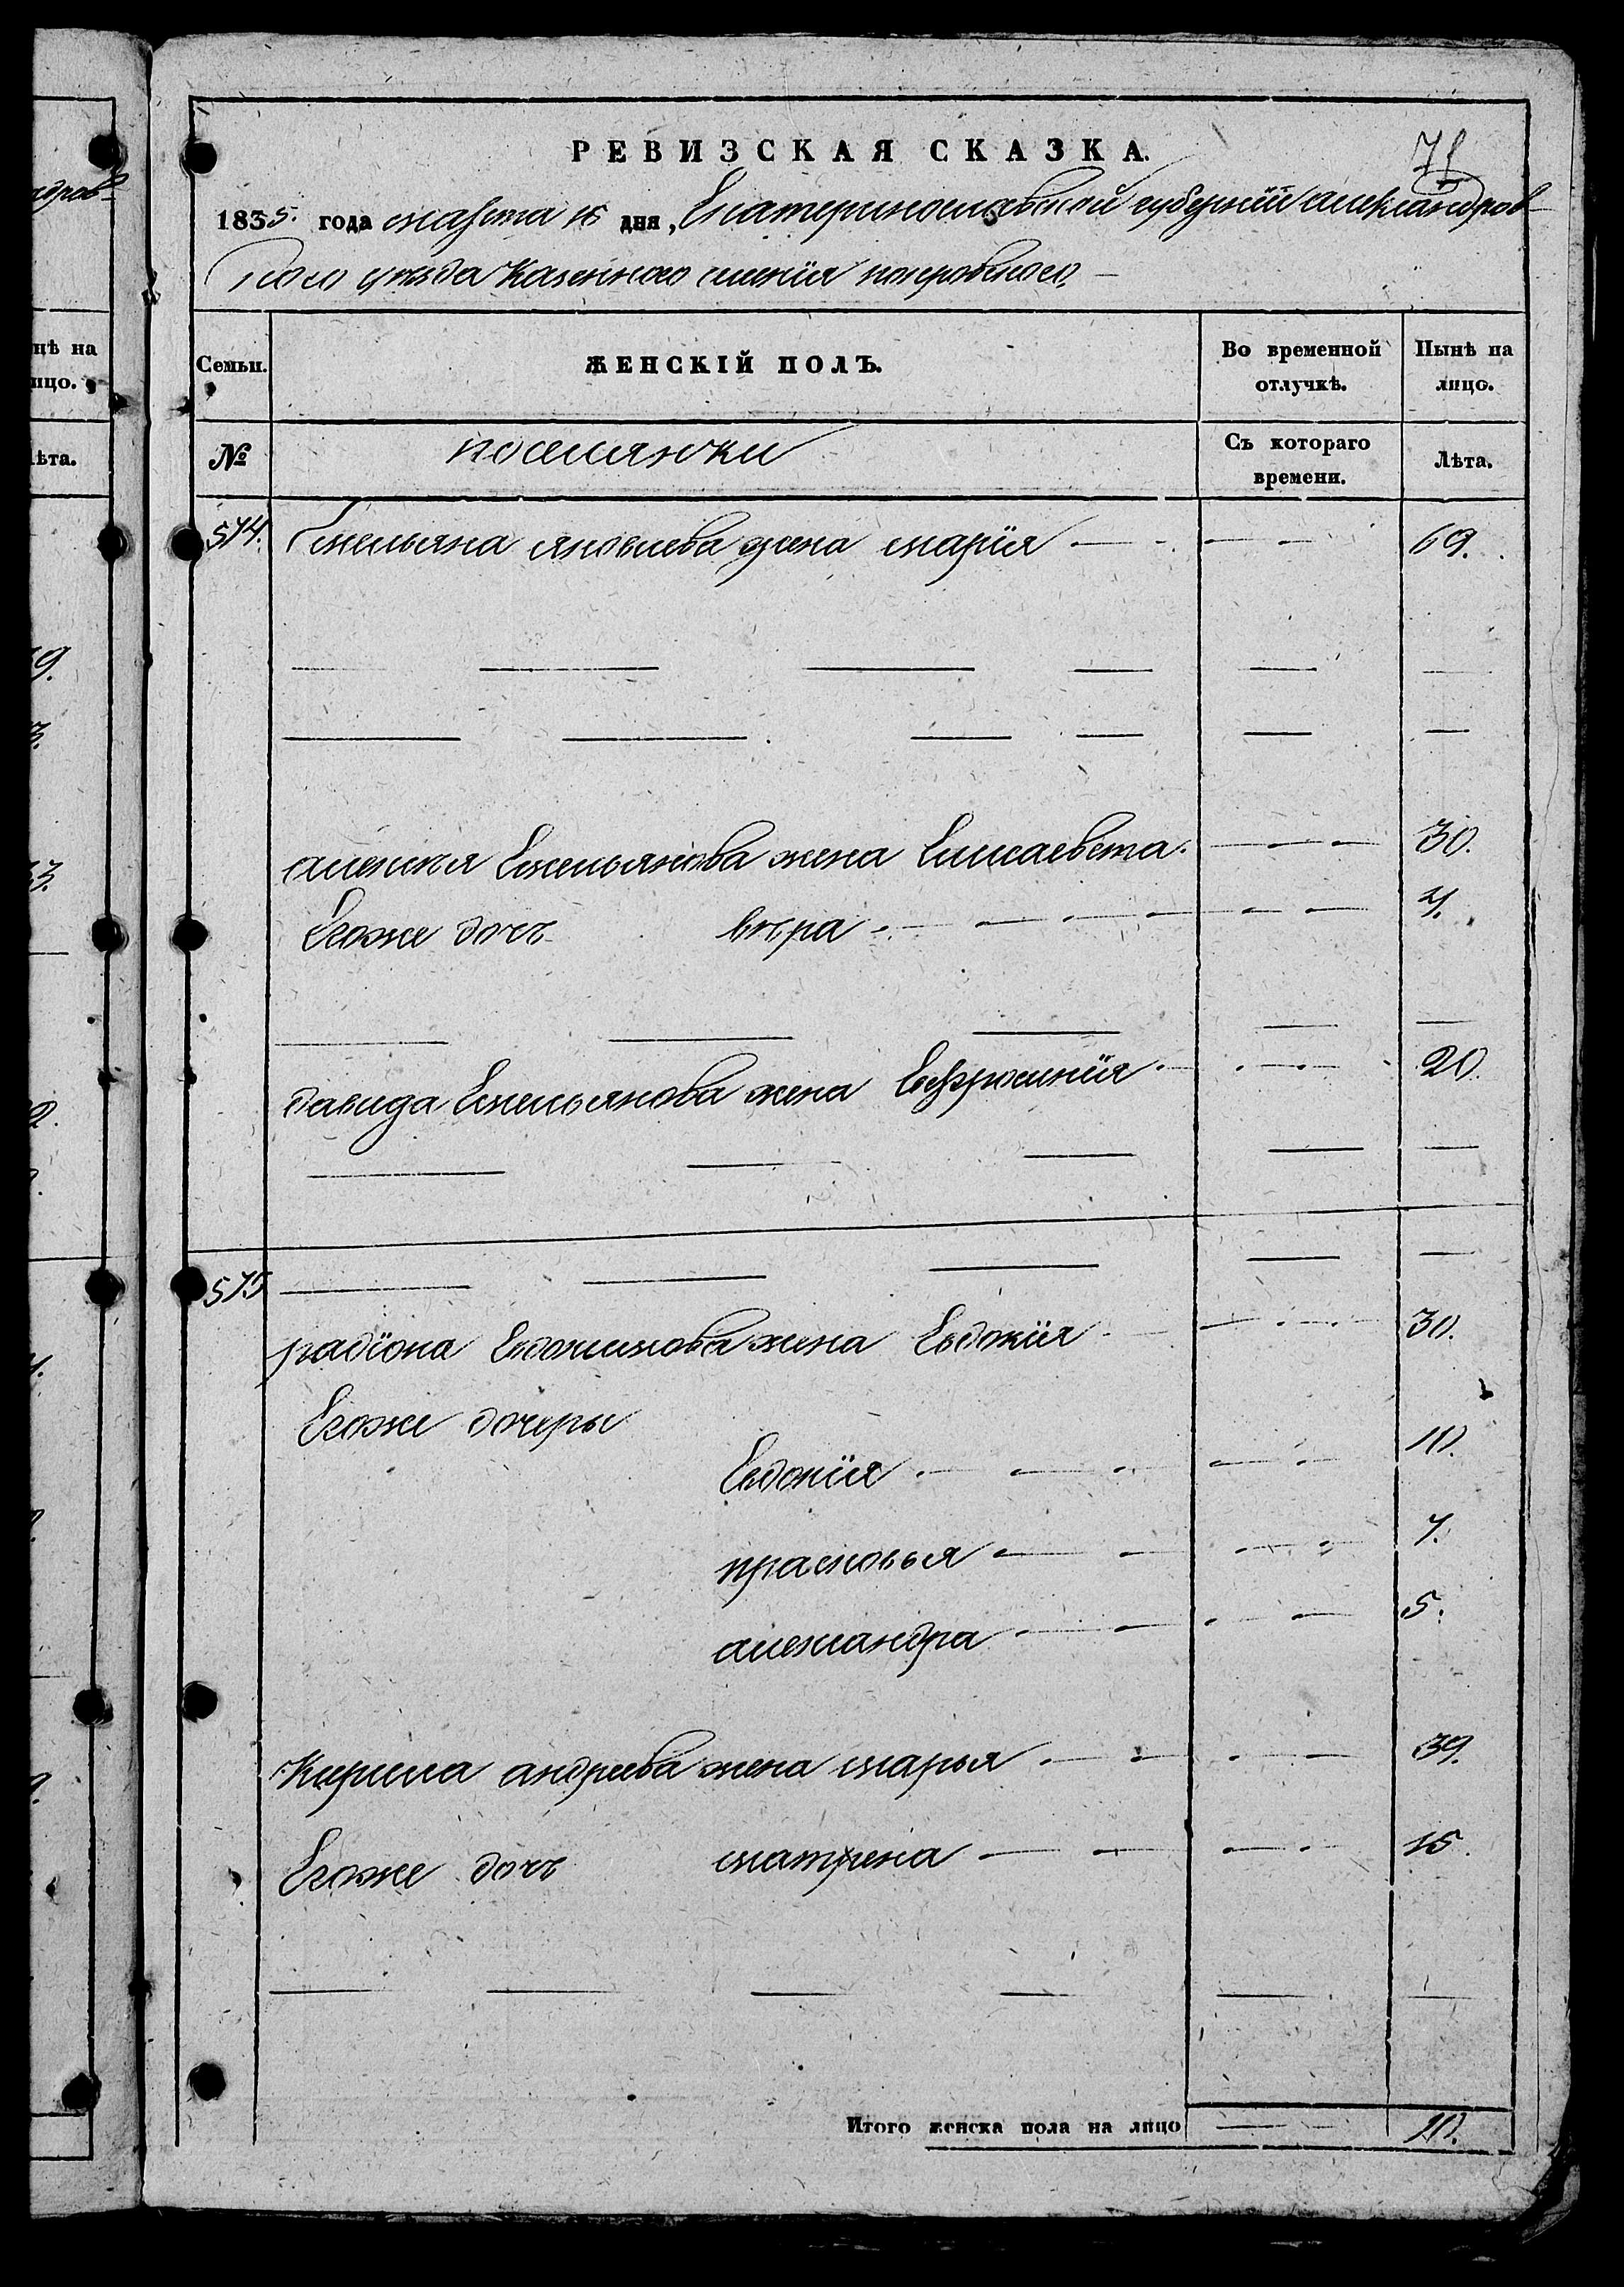 РЕВИЗСКАЯ СКАЗКА.
71
1835. года марта 15 дня, Екатеринославской губернiи александров
ского уѣзда Казенного селенiя покровского
Семьи. ЖЕНСКIЙ ПОЛЪ. Во временной отлучкѣ. Нынѣ на лицо.
№ поселянки Съ котораго времени. Лѣта.
574. Емельяна яковлева жена марiя 69.
алексѣя Емельянова жена Елисаевета 30.
Егоже дочь вѣра 4.
давида Емельянова жена Евфросинiя 20
575
радiона Евдокимова жена Евдокiя 30.
Егоже дочеры
Евдокiя 10.
прасковья 7.
александра 5.
Кирила андреева жена марья 39.
Егоже дочь матрена 15.
Итого женска пола на лицо 10.